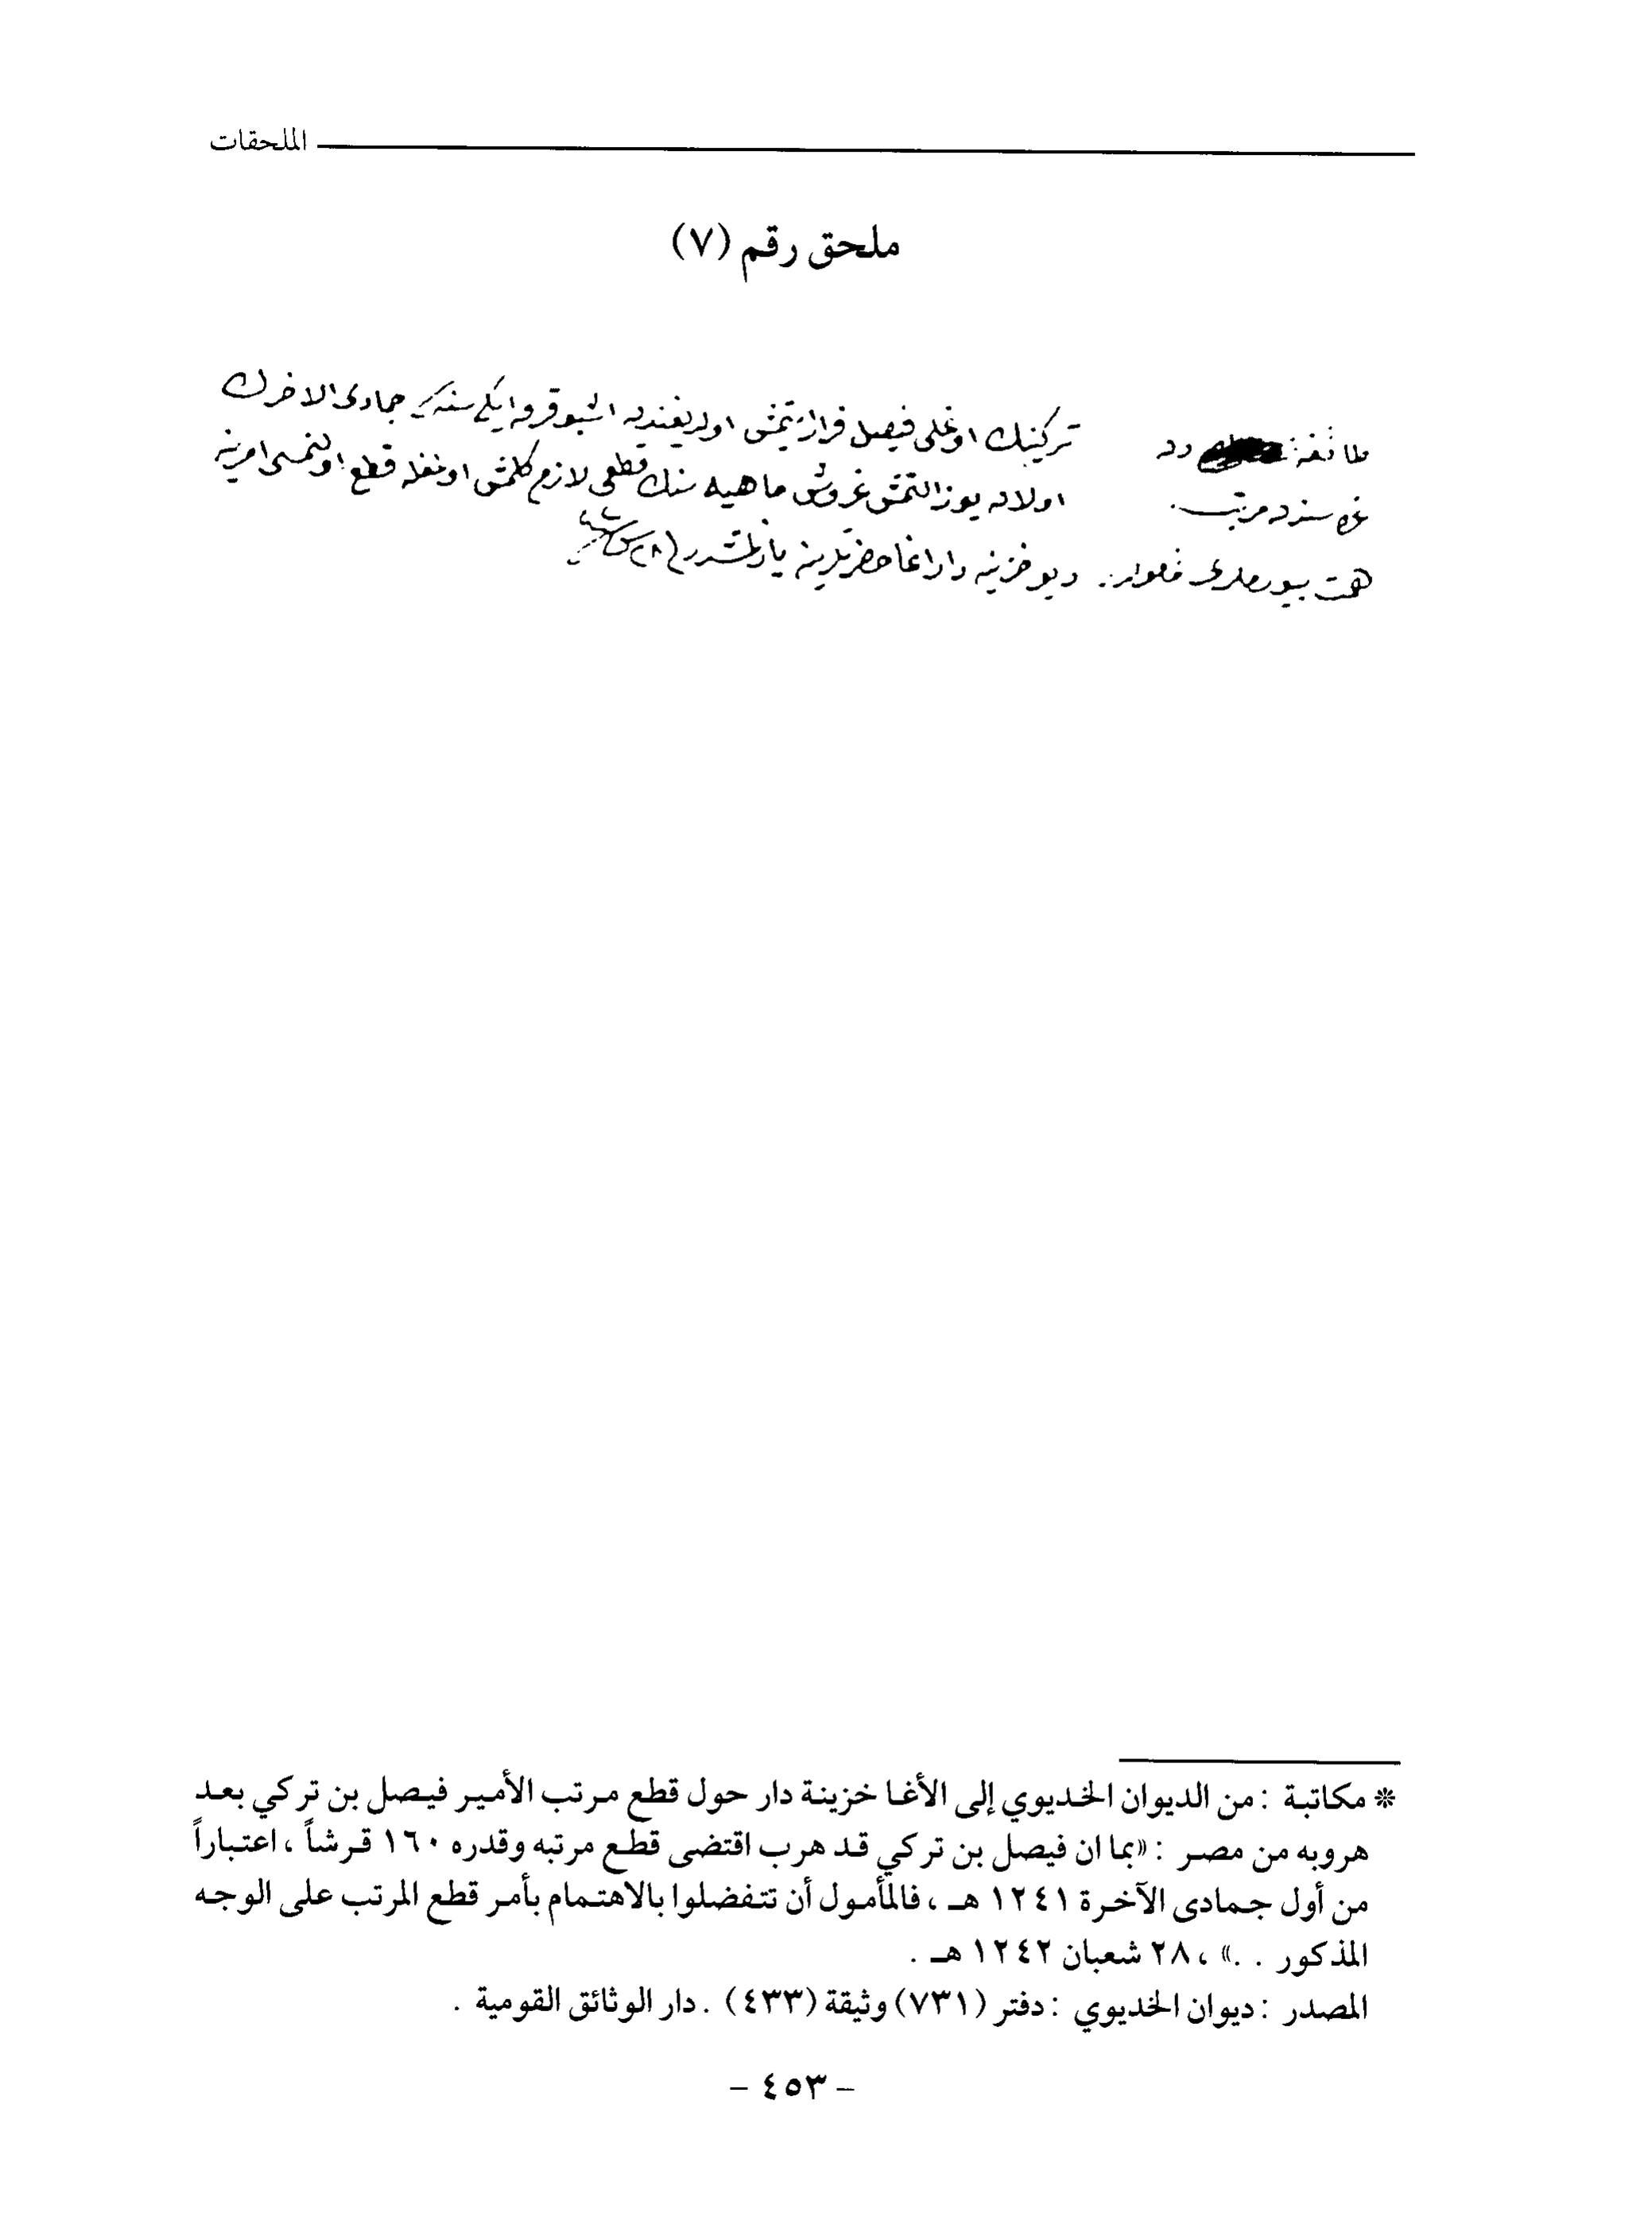 الملحقات
ملحق رقم (٧)
تركينك اوغلى فيصل فرار ايتمش اولديغندن اشبو قرق ايكى سنه سى جمادى الاخرك
غره سندن مرتب اولان يوز التمش غروش ماهيه سنك قطعى لازم كلمش اولمغله قطع اولنمسى امرينه
همت بيورملرى ديو خزينه دار اغا حضرتلرينه يازلمشدر
* مكاتبة : من الديوان الخديوي إلى الأغا خزينة دار حول قطع مرتب الأمير فيصل بن تركي بعد
هروبه من مصر : «بما ان فيصل بن تركي قد هرب اقتضى قطع مرتبه وقدره ١٦٠ قرشاً ، اعتباراً
من أول جمادى الآخرة ١٢٤١ هـ ، فالمأمول أن تتفضلوا بالاهتمام بأمر قطع المرتب على الوجه
المذكور . .» ، ٢٨ شعبان ١٢٤٢ هـ .
المصدر : ديوان الخديوي : دفتر (٧٣١) وثيقة (٤٣٣) . دار الوثائق القومية .
- ٤٥٣ -